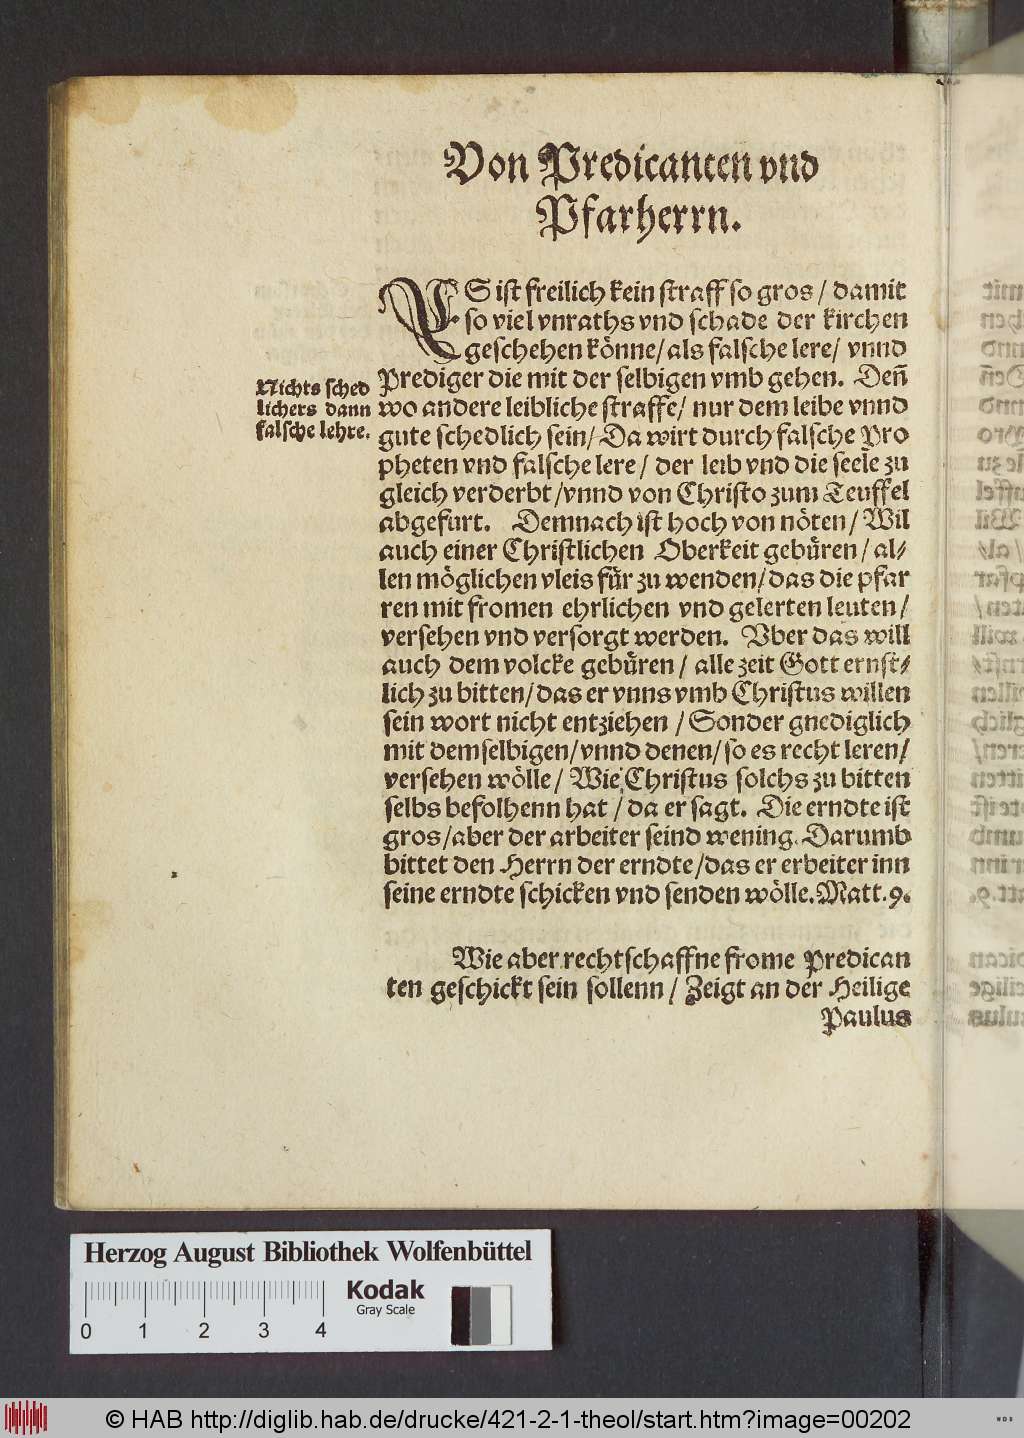 Von Predicanten vnd
Pfarherrn.
ES ist freilich kein straff so gros / damit
so viel vnraths vnd schade der kirchen
geschehen könne / als falsche lere / vnnd
Prediger die mit der selbigen vmb gehen. Deñ
wo andere leibliche straffe / nur dem leibe vnnd
gute schedlich sein / Da wirt durch falsche Pro
pheten vnd falsche lere / der leib vnd die seele zu
gleich verderbt / vnnd von Christo zum Teuffel
abgefurt. Demnach ist hoch von nöten / Wil
auch einer Christlichen Oberkeit gebüren / al⸗
len möglichen vleis für zu wenden / das die pfar
ren mit fromen ehrlichen vnd gelerten leuten /
versehen vnd versorgt werden. Vber das will
auch dem volcke gebüren / alle zeit Gott ernst⸗
lich zu bitten / das er vnns vmb Christus willen
sein wort nicht entziehen / Sonder gnediglich
mit demselbigen / vnnd denen / so es recht leren /
versehen wölle / Wie Christus solchs zu bitten
selbs befolhenn hat / da er sagt. Die erndte ist
gros / aber der arbeiter seind wening. Darumb
bittet den Herrn der erndte / das er erbeiter inn
seine erndte schicken vnd senden wölle. Matt. 9.
Nichts sched
lichers dann
falsche lehre.
Wie aber rechtschaffne frome Predican
ten geschickt sein sollenn / Zeigt an der Heilige
Paulus
Herzog August Bibliothek Wolfenbüttel
Kodak
Gray Scale
0 1 2 3 4
© HAB http://diglib.hab.de/drucke/421-2-1-theol/start.htm?image=00202